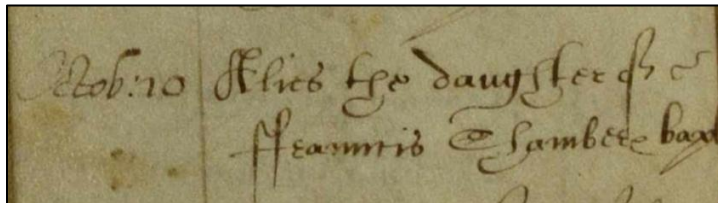 Octob: 10 Alies the daughter of
ffrauncis Chamber bap